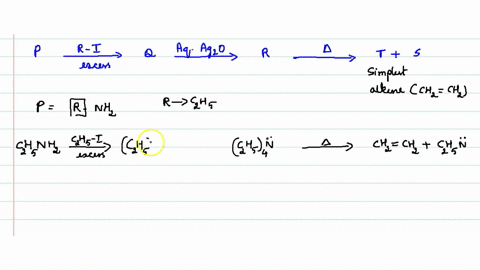 P R-I excess → Q Aq. Ag2O → R Δ → T + S
Simplest
alkene (CH2=CH2)
P = [R] NH2 R → C2H5
C2H5NH2 C2H5-I excess → (C2H5 (C2H5)4N̈ Δ → CH2=CH2 + C2H5N̈